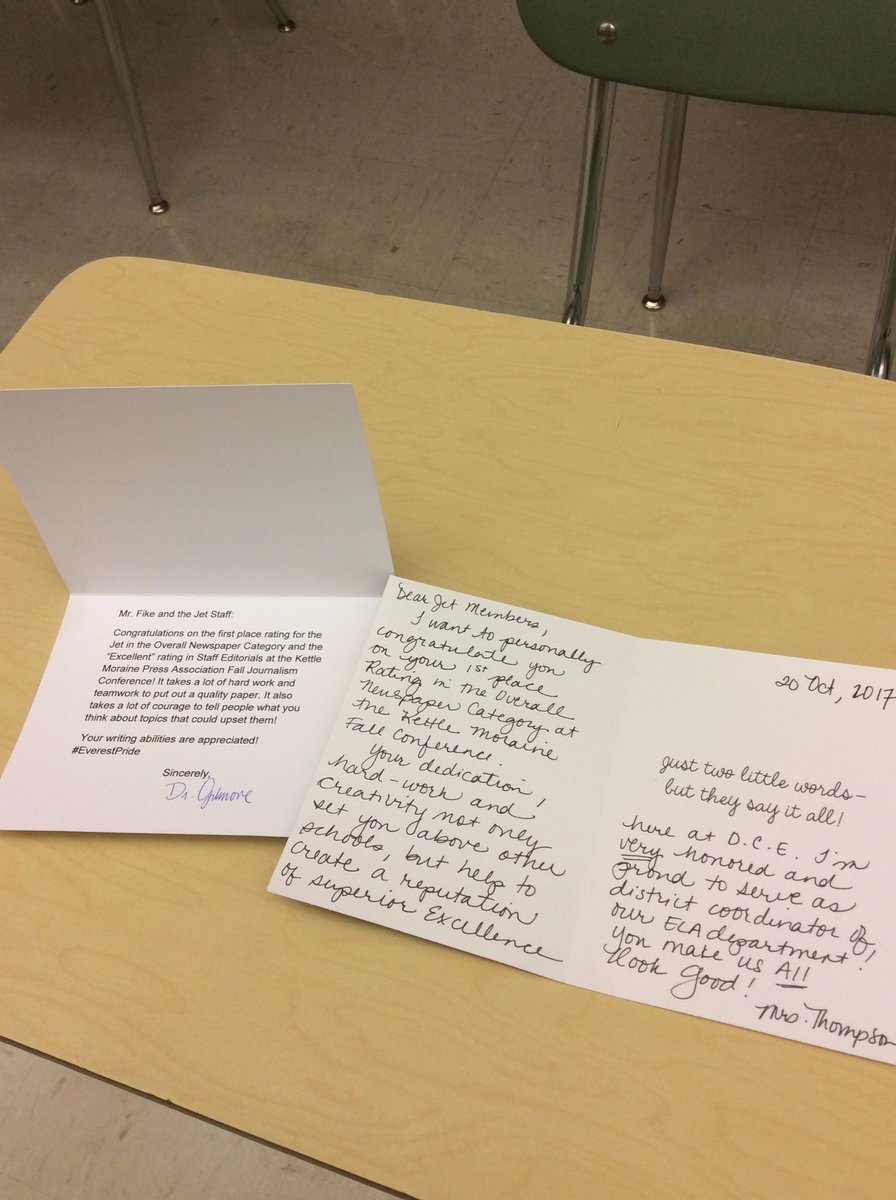 Mr. Fike and the Jet Staff:
Congratulations on the first place rating for the
Jet in the Overall Newspaper Category and the
"Excellent" rating in Staff Editorials at the Kettle
Moraine Press Association Fall Journalism
Conference! It takes a lot of hard work and
teamwork to put out a quality paper. It also
takes a lot of courage to tell people what you
think about topics that could upset them!
Your writing abilities are appreciated!
#EverestPride
Sincerely,
Dr. Gilmore
Dear Jet Members,
I want to personally
congratulate you
on your 1st place
Rating in the Overall
Newspaper Category at
the Kettle Moraine
Fall Conference.
Your dedication,
hard-work and
creativity not only
set you above other
schools, but help to
create a reputation
of superior Excellence
20 Oct, 2017
just two little words–
but they say it all!
here at D.C.E. I'm
very honored and
proud to serve as
district coordinator of
our ELA department!
You make us All
look Good!
Mrs. Thompson